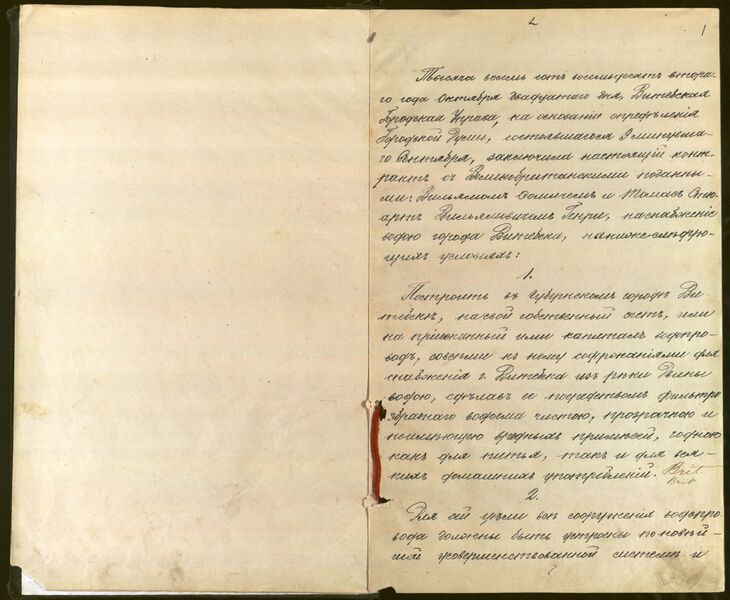 2
1
Тысяча восемь сотъ восемьдесятъ второ-
го года Октября двадцатаго дня, Витебская
Городская Управа, на основаніи опредѣленія
Городской Думы, состоявшагося 9 минувша-
го Сентября, заключила настоящій конт-
рактъ съ Великобританскими подданны-
ми: Вильямомъ и Томасъ Стю-
артъ Вильямовичемъ Генри, на снабженіе
водою города Витебска, на нижеслѣдую-
щихъ условіяхъ:
1.
Построить въ Губернскомъ городѣ Ви-
тебскѣ, на свой собственный счетъ, или
на пріисканный ими капиталъ водопро-
водъ, со всѣми къ нему содержаніями для
снабженія г. Витебска изъ рѣки Двины
водою, сдѣлавъ ее посредствомъ фильтро
образнаго водоема чистою, прозрачною и
неимѣющую вредныхъ примѣсей, годною
какъ для питья, такъ и для вся-
кихъ домашнихъ употребленій.
2.
Для сей цѣли всѣ сооруженія водопро
вода должны быть устроены по новѣй-
шей усовершенствованной системѣ и